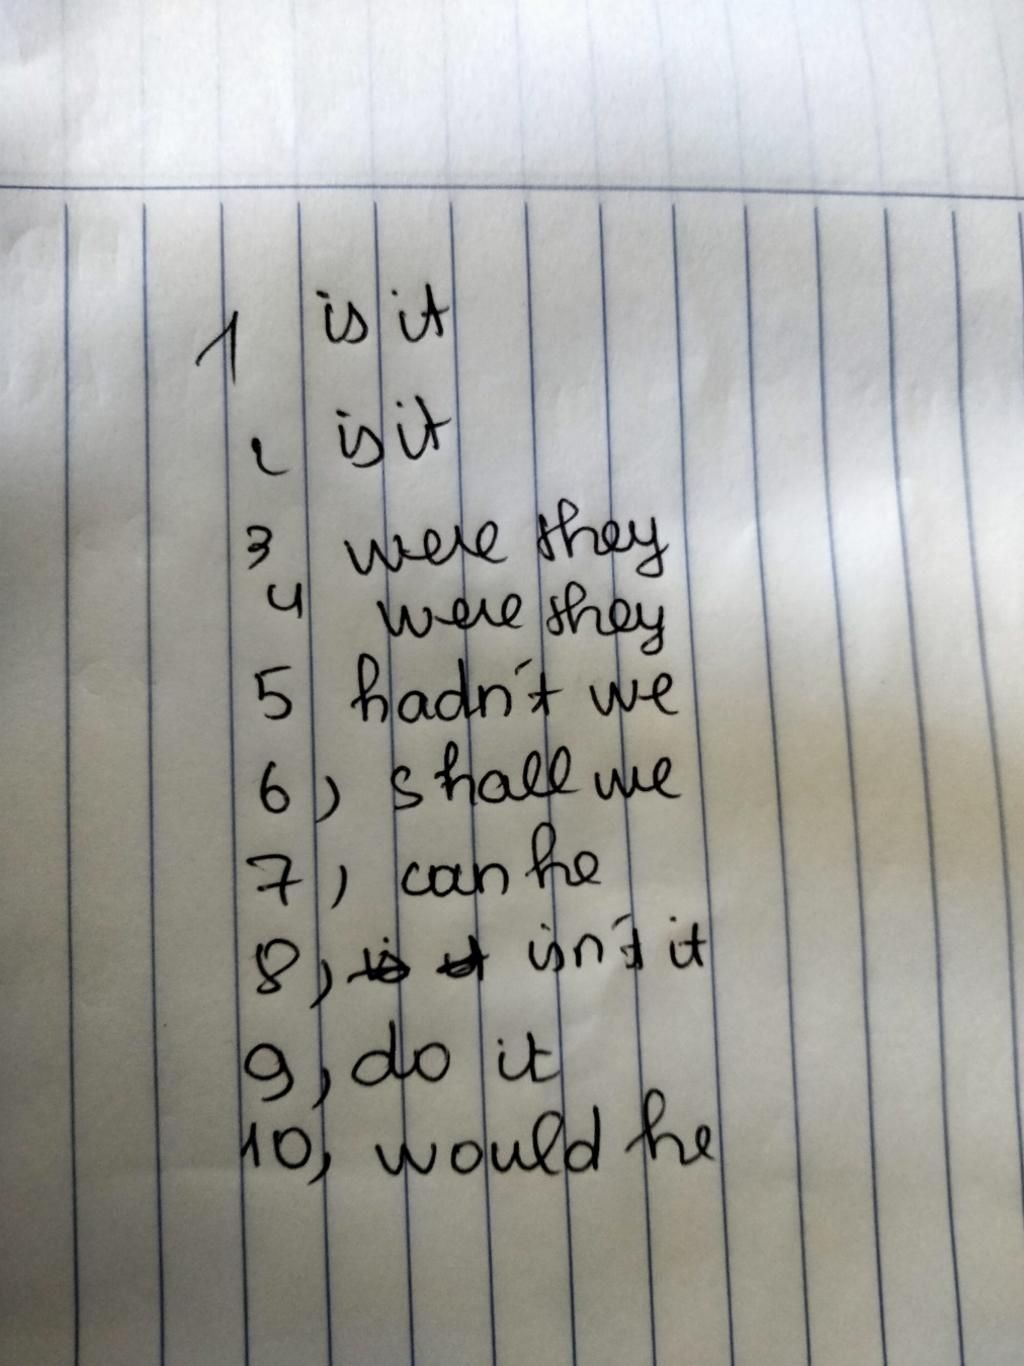 1 is it
2 is it
3 were they
4 were they
5 hadn't we
6, shall we
7, can he
8, is it isn't it
9, do it
10, would he